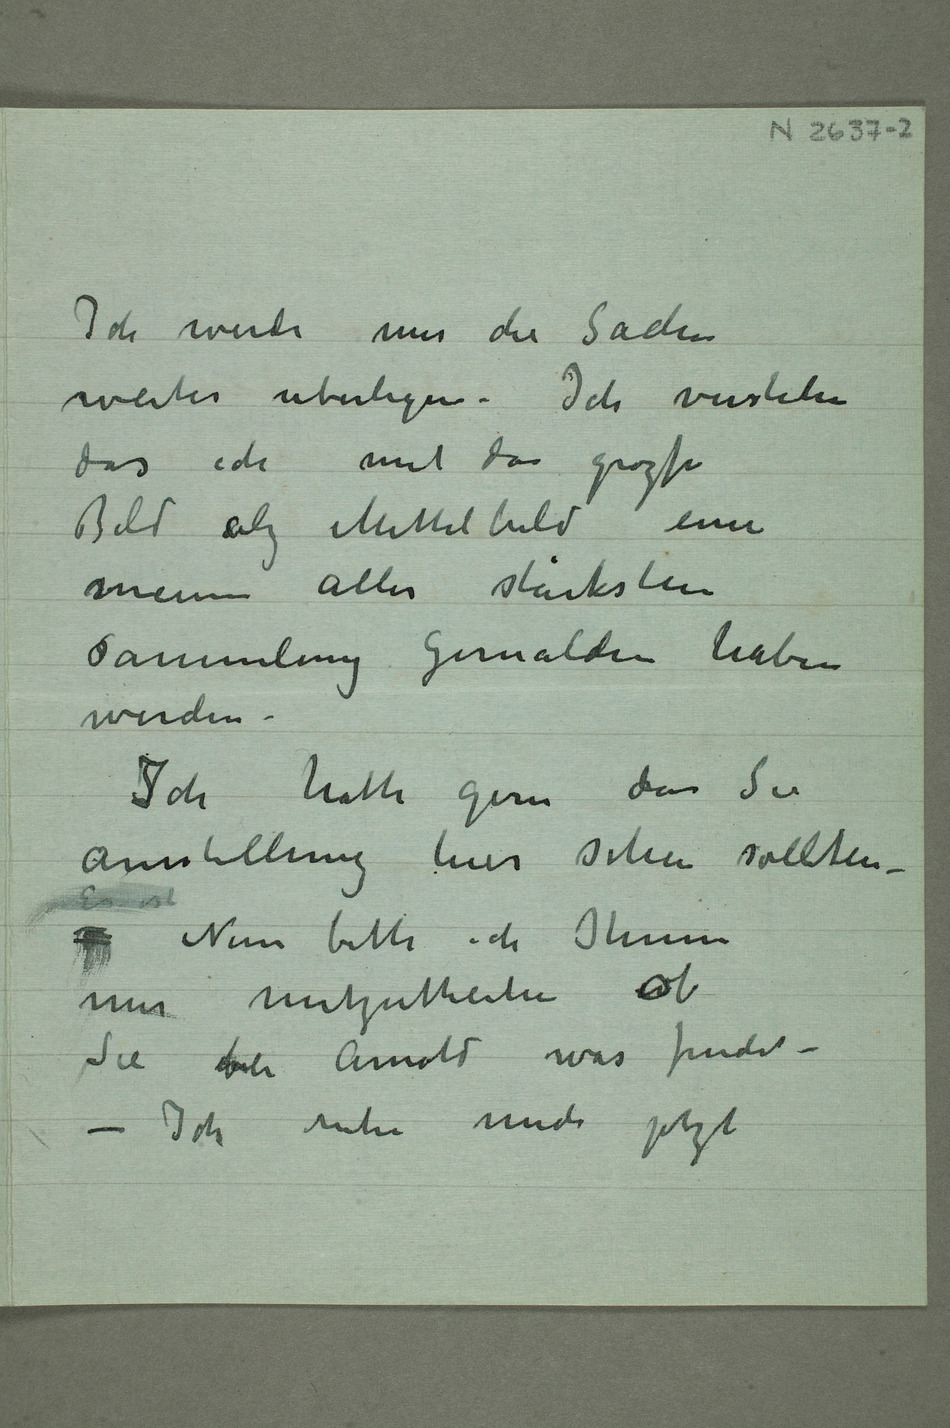 N 2637-2
Ich werde mir die Sachen
weiter uberlegen – Ich verstehe
das ich mit das grozse
Bild alz Mittelbild eine
meine aller stärksten
Sammlung Gemälden haben
werden –
Ich hatte gern das Sie
ausstellung hier sehen sollten –
Es ist
Nun bitte ich Ihnen
mir mitzutheilen ob
Sie bei Arnold was findet –
– Ich ruhe mich jetzt